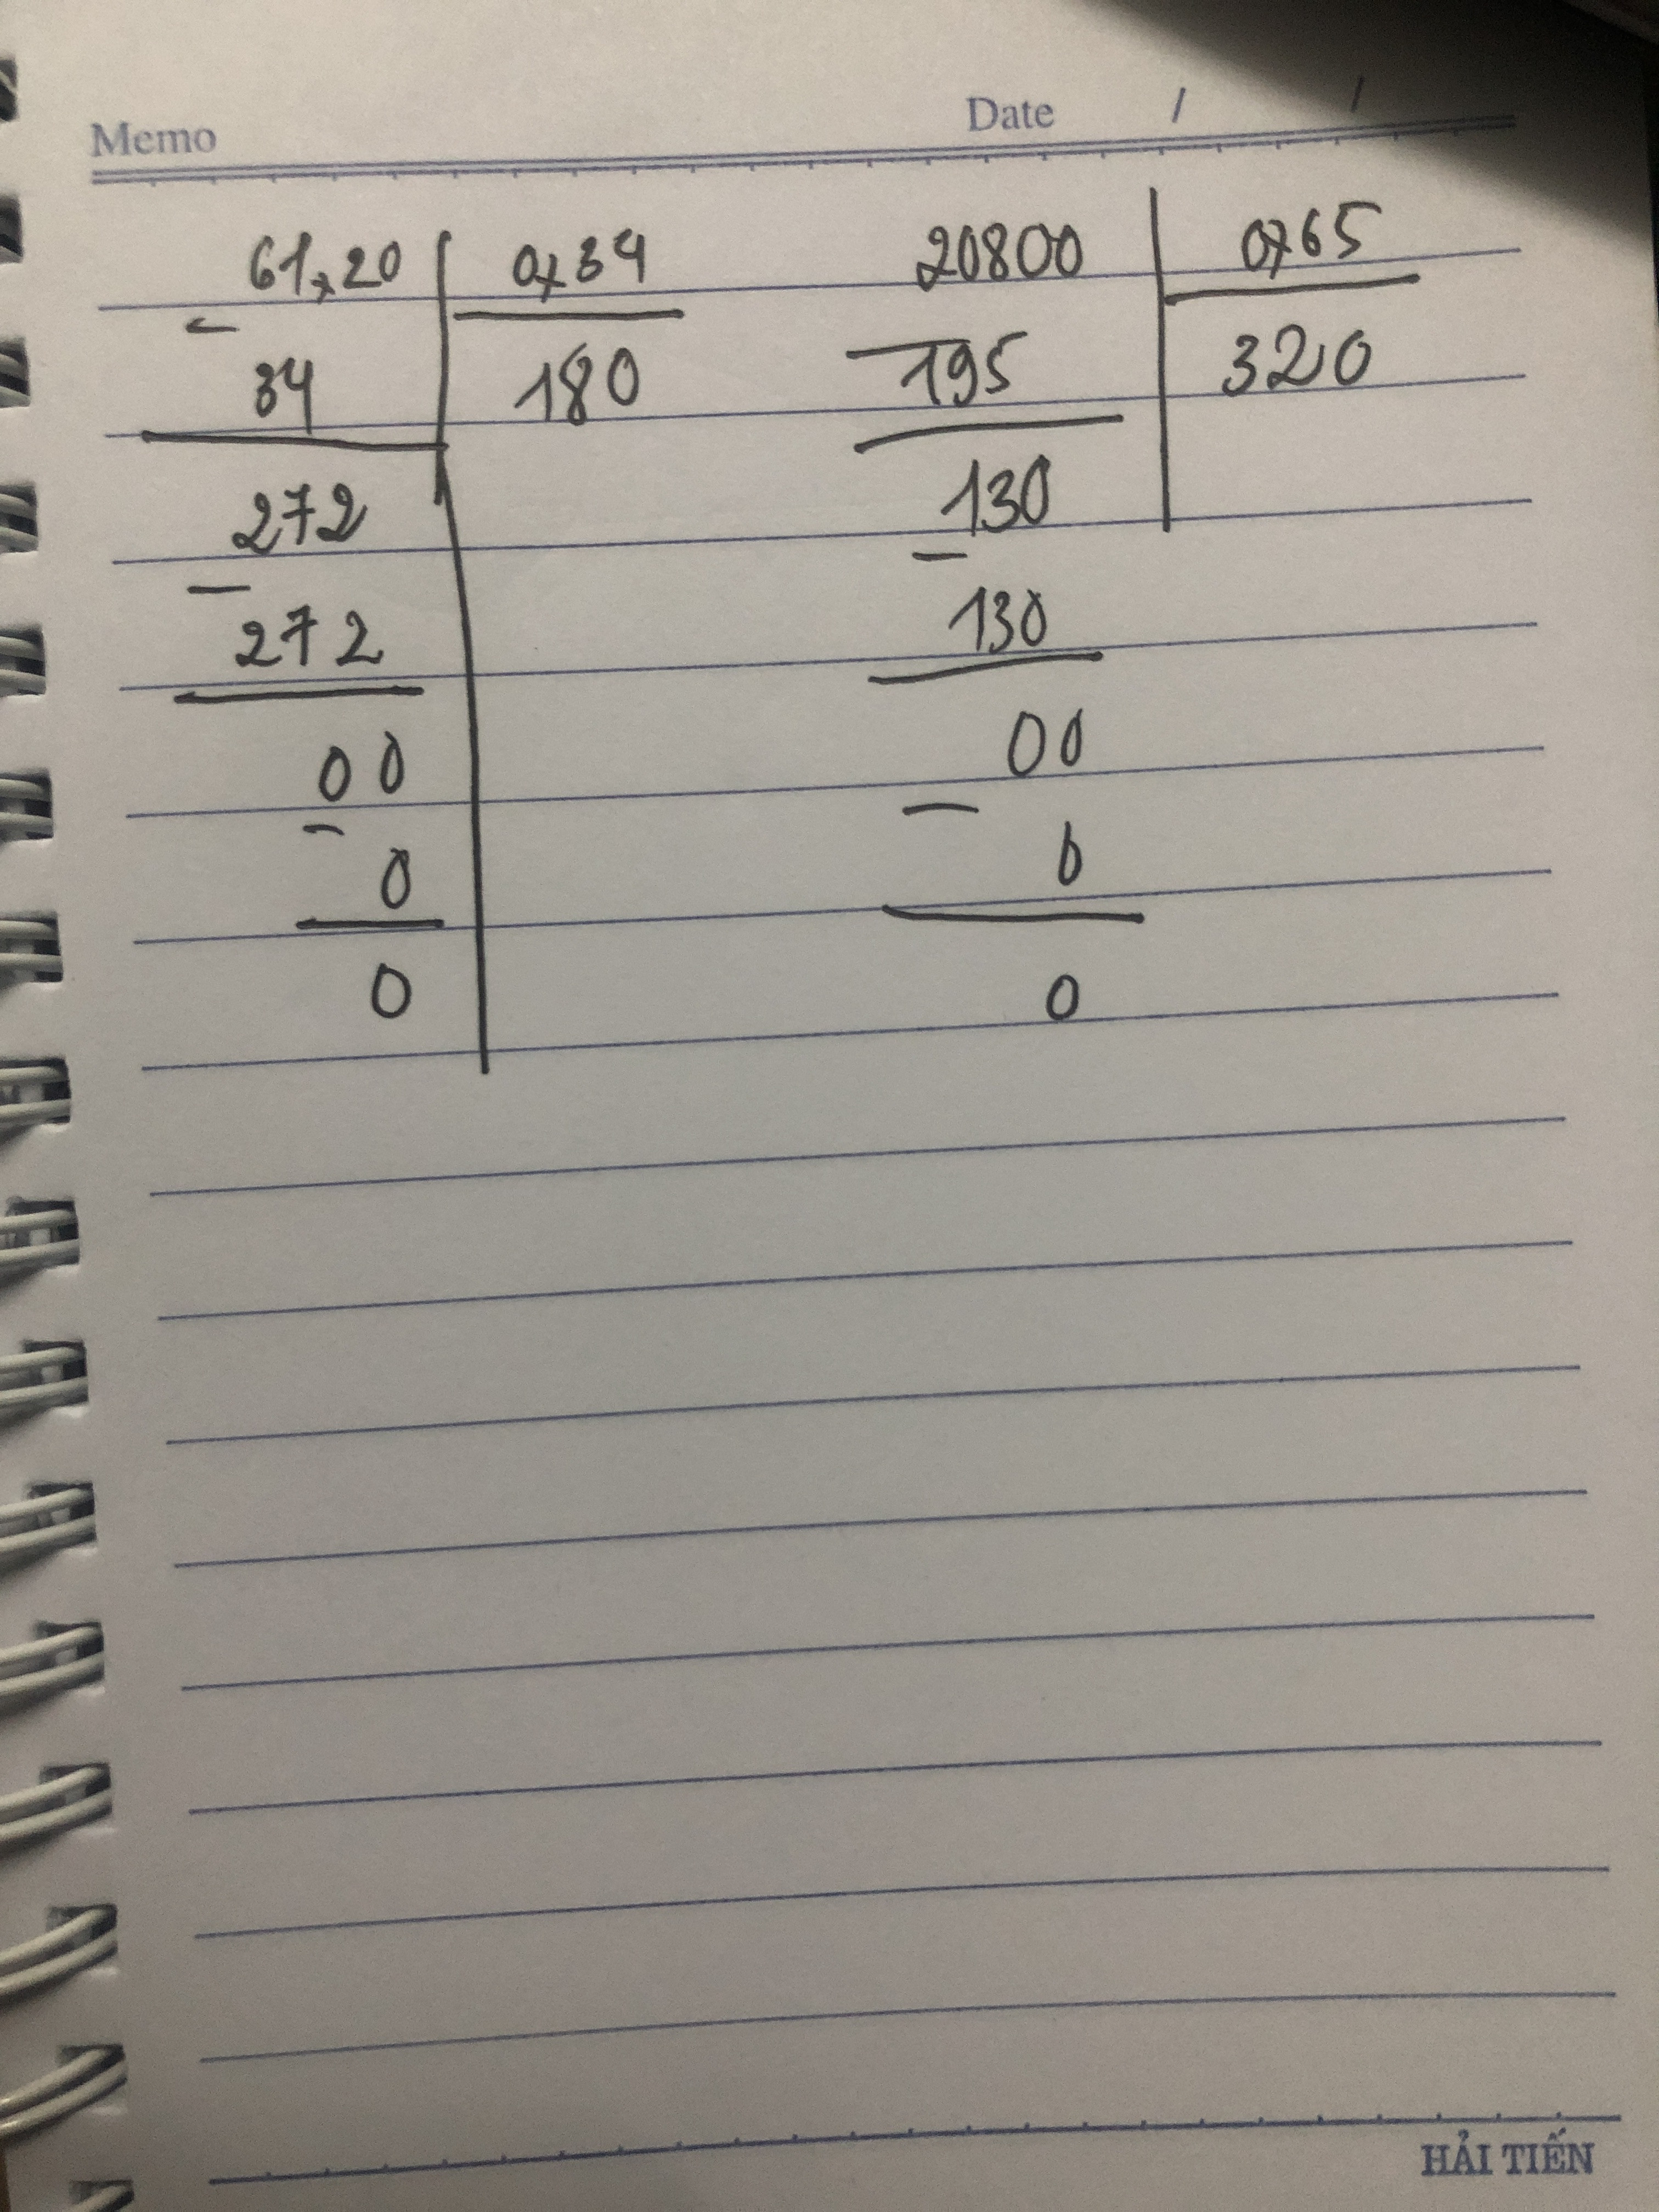 Memo Date / /
61,20 0,34 20800 0,65
- 34 180 - 195 320
272 130
- 272 - 130
00 00
- 0 - 0
0 0
HẢI TIẾN